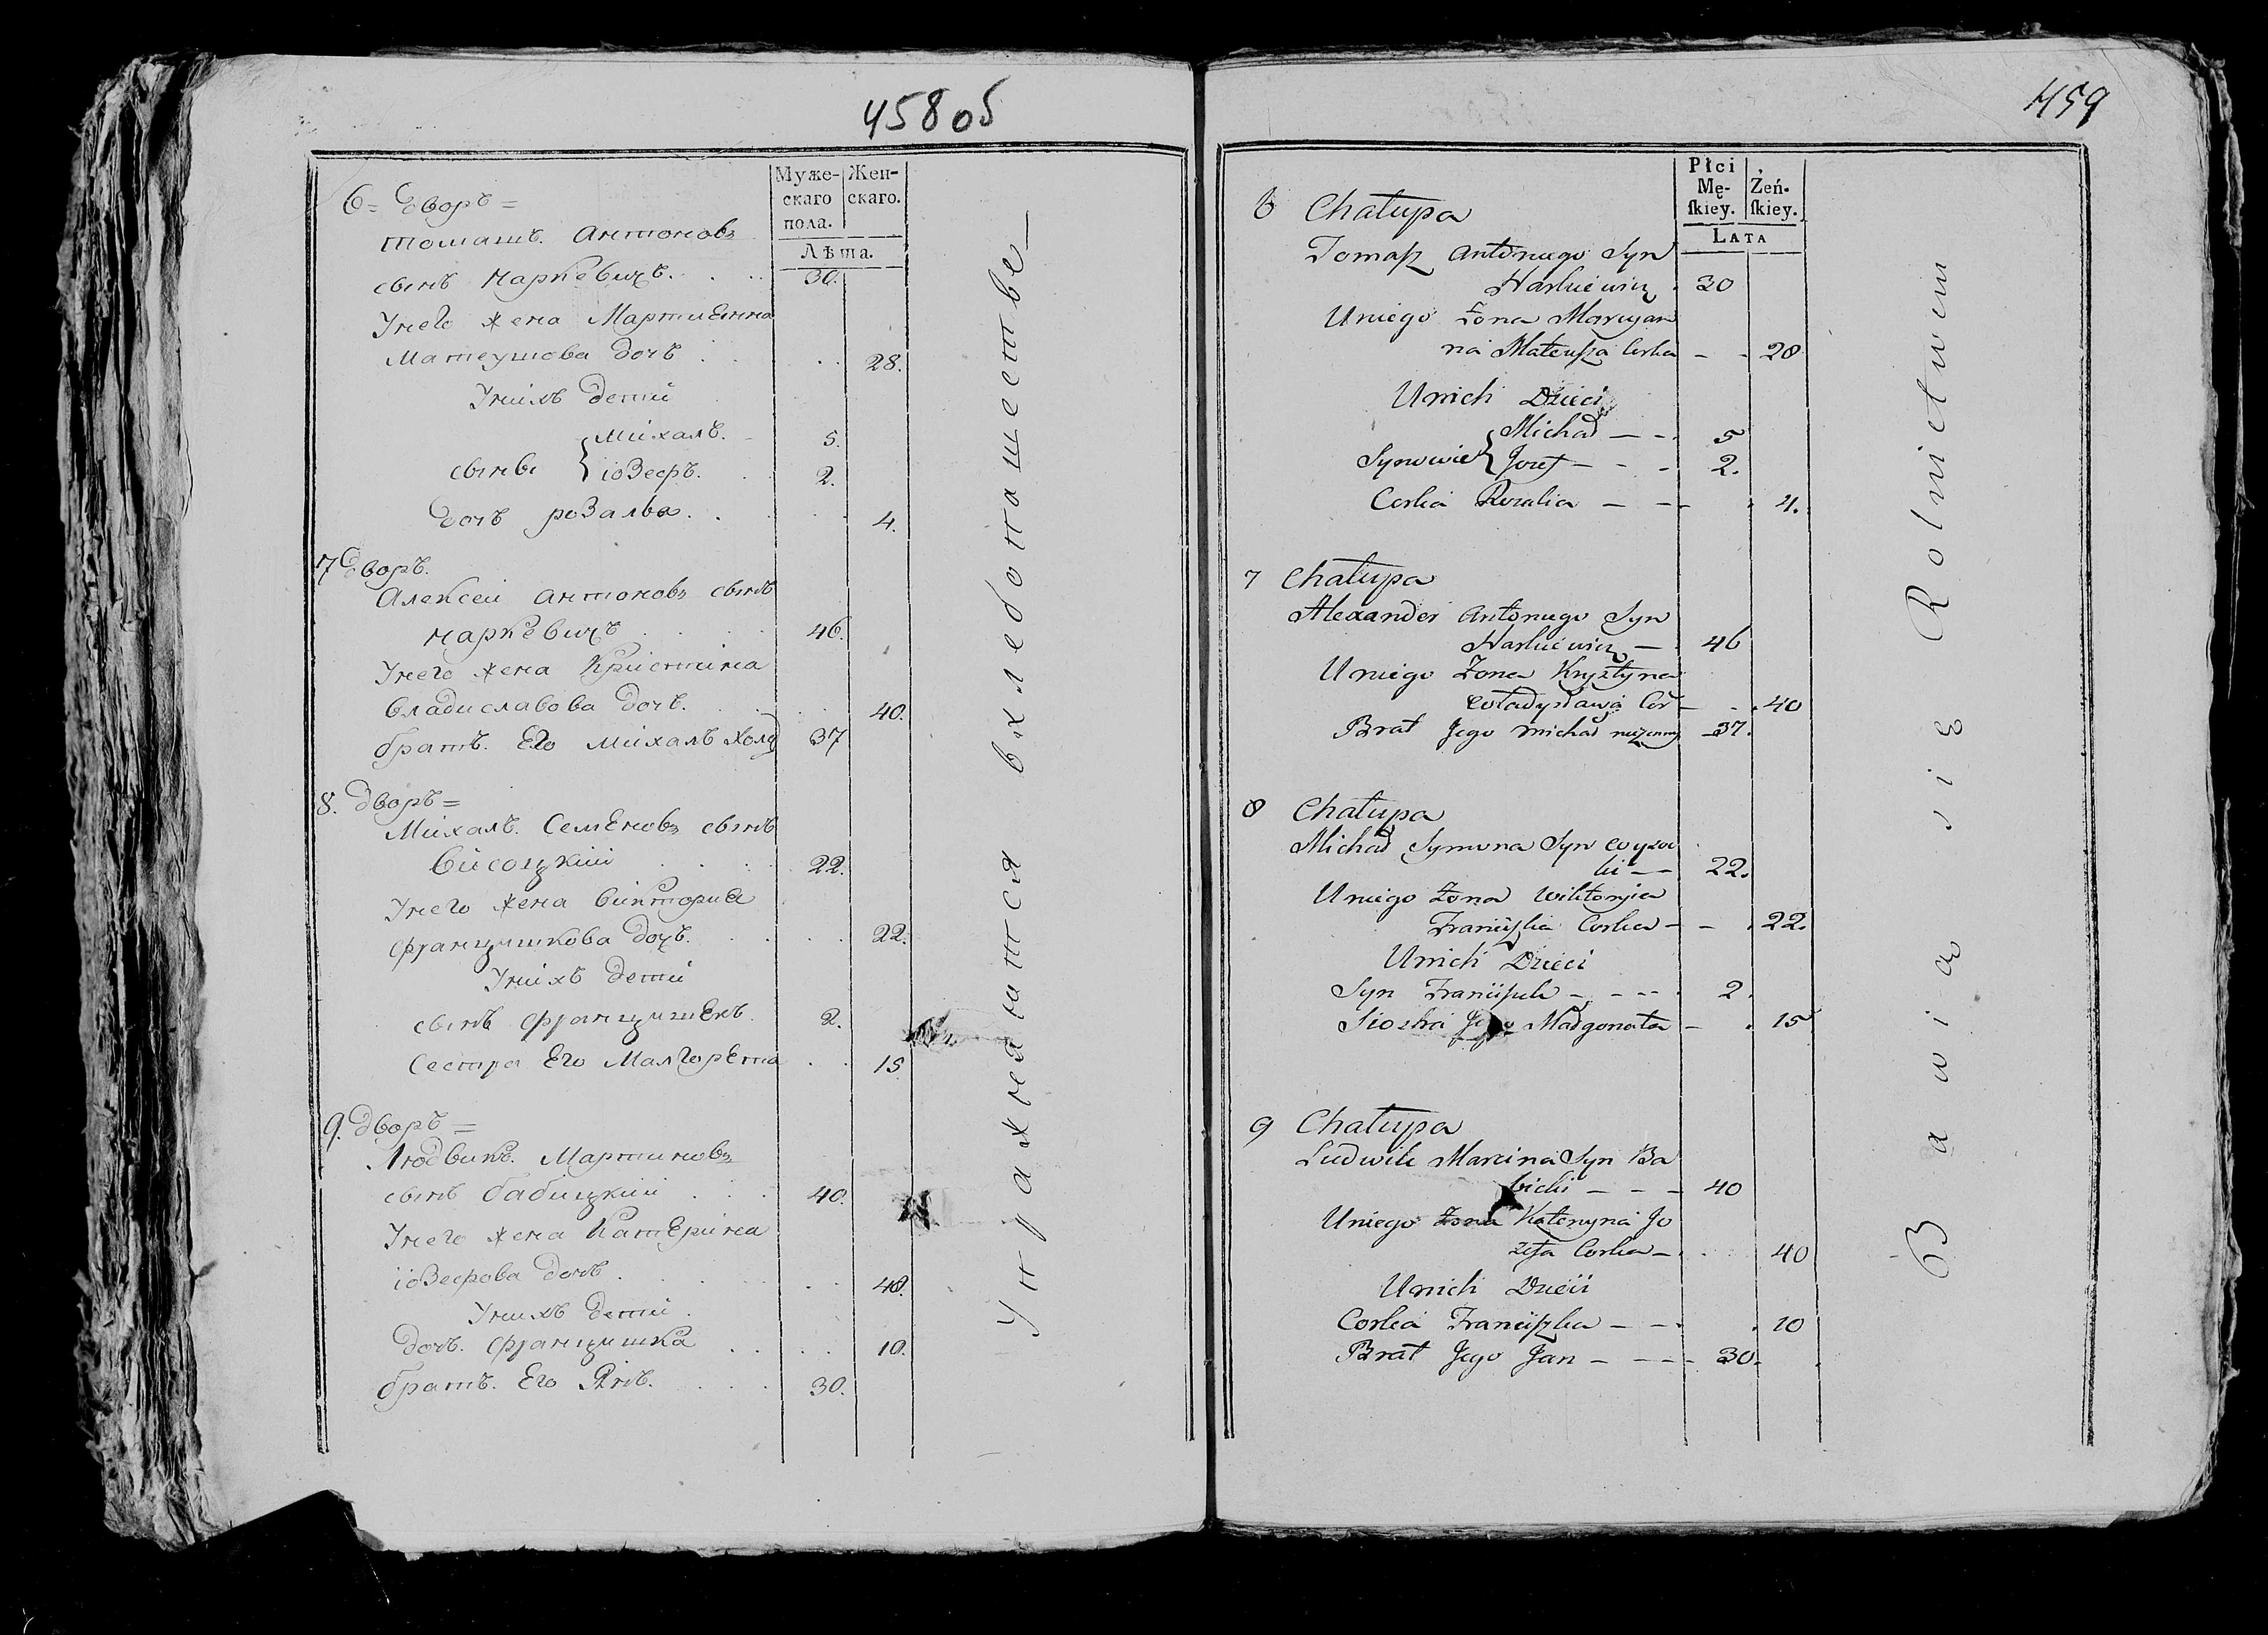 458об
Муже-
скаго
пола.
Жен-
скаго.
Лѣта.
6= дворъ=
томашъ. Антоновъ
сынъ наркевичъ. 30.
Унего жена Мартиенна
Матеушова дочь 28.
Унихъ дети
сынве { Михалъ. 5.
іозефъ. 2.
дочь розалья. 4.
7 дворъ.
Алексеи антоновъ сынъ
наркевичъ 46.
Унего жена Крiстiна
владиславова дочь. 40.
братъ. Его михалъ холо 37
8. дворъ=
Михалъ. Семеновъ сынъ
висоцкiи 22.
Унего жена виктория
францишкова дочь. 22.
Унiхъ дети
сынъ францишекъ. 2.
сестра Его Малгорета 15
9. дворъ=
Людвикъ. Мартиновъ
сынъ бабицкии 40.
Унего жена Катерiна
iозефова дочь 40.
Унихъ дети
дочь. францишка 10.
братъ. Его Янъ. 30.
Упражняются вхлебопашестве
459
Płci
Mę-
ſkiey.
Żeń-
ſkiey.
LATA
6 Chałupa
Tomaſz Antoniego Syn
Narkiewicz 30
Uniego Żona Maryan
na Mateuſza Corka 28
Unich Dzieci
Synowie { Michał 5
Jozef 2.
Corka Rozalia 4.
7 Chałupa
Alexander Antoniego Syn
Narkiewicz 46
Uniego Żona Krysztyna
Władysława Cor 40
Brat Jego Michał nieżenny 37.
8 Chałupa
Michał Symona Syn Wysoc
ki 22.
Uniego Żona Wiktorjia
Franciſzka Corka 22.
Unich Dzieci
Syn Franciſzek 2
Siostra Jego Małgorzata 15
9 Chałupa
Ludwik Marcina Syn Ba
bicki 40
Uniego Żona Katerzyna Jo
zefa Corka 40
Unich Dzieci
Corka Franciſzka 10
Brat Jego Jan 30.
Bawią się Rolnictwem